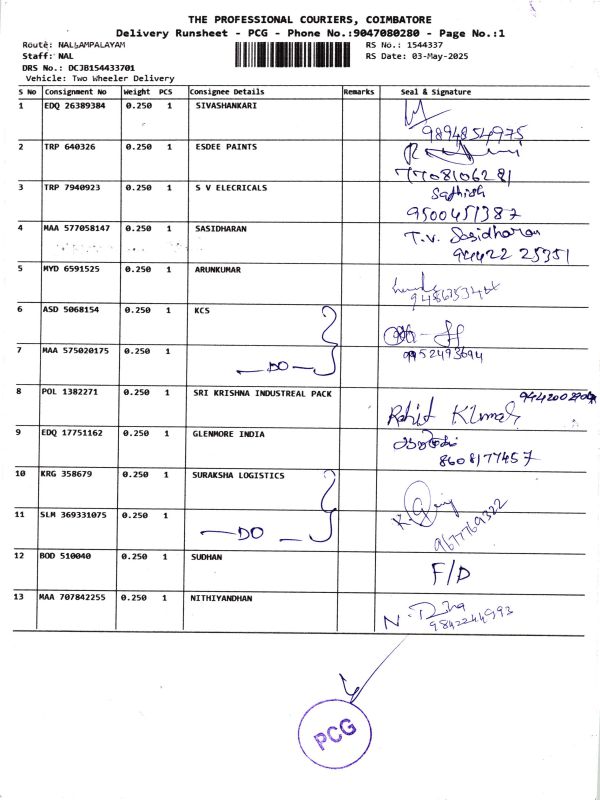 THE PROFESSIONAL COURIERS, COIMBATORE
Delivery Runsheet - PCG - Phone No.:9047080280 - Page No.:1
Route: NALLAMPALAYAM RS No.: 1544337
Staff: NAL RS Date: 03-May-2025
DRS No.: DCJB154433701
Vehicle: Two Wheeler Delivery
S No Consignment No Weight PCS Consignee Details Remarks Seal & Signature
1 EDQ 26389384 0.250 1 SIVASHANKARI
9894854975
2 TRP 640326 0.250 1 ESDEE PAINTS
7708106281
3 TRP 7940923 0.250 1 S V ELECRICALS Sathish
9500451387
4 MAA 577058147 0.250 1 SASIDHARAN T.V. Sasidharan
94422 25351
5 MYD 6591525 0.250 1 ARUNKUMAR
6 ASD 5068154 0.250 1 KCS
7 MAA 575020175 0.250 1 9952493694
DO
8 POL 1382271 0.250 1 SRI KRISHNA INDUSTREAL PACK
Rohit Kumar
9 EDQ 17751162 0.250 1 GLENMORE INDIA
8608177457
10 KRG 358679 0.250 1 SURAKSHA LOGISTICS
11 SLM 369331075 0.250 1
DO 9677769322
12 BOD 510040 0.250 1 SUDHAN F/D
13 MAA 707842255 0.250 1 NITHIYANDHAN
9842244993
PCG